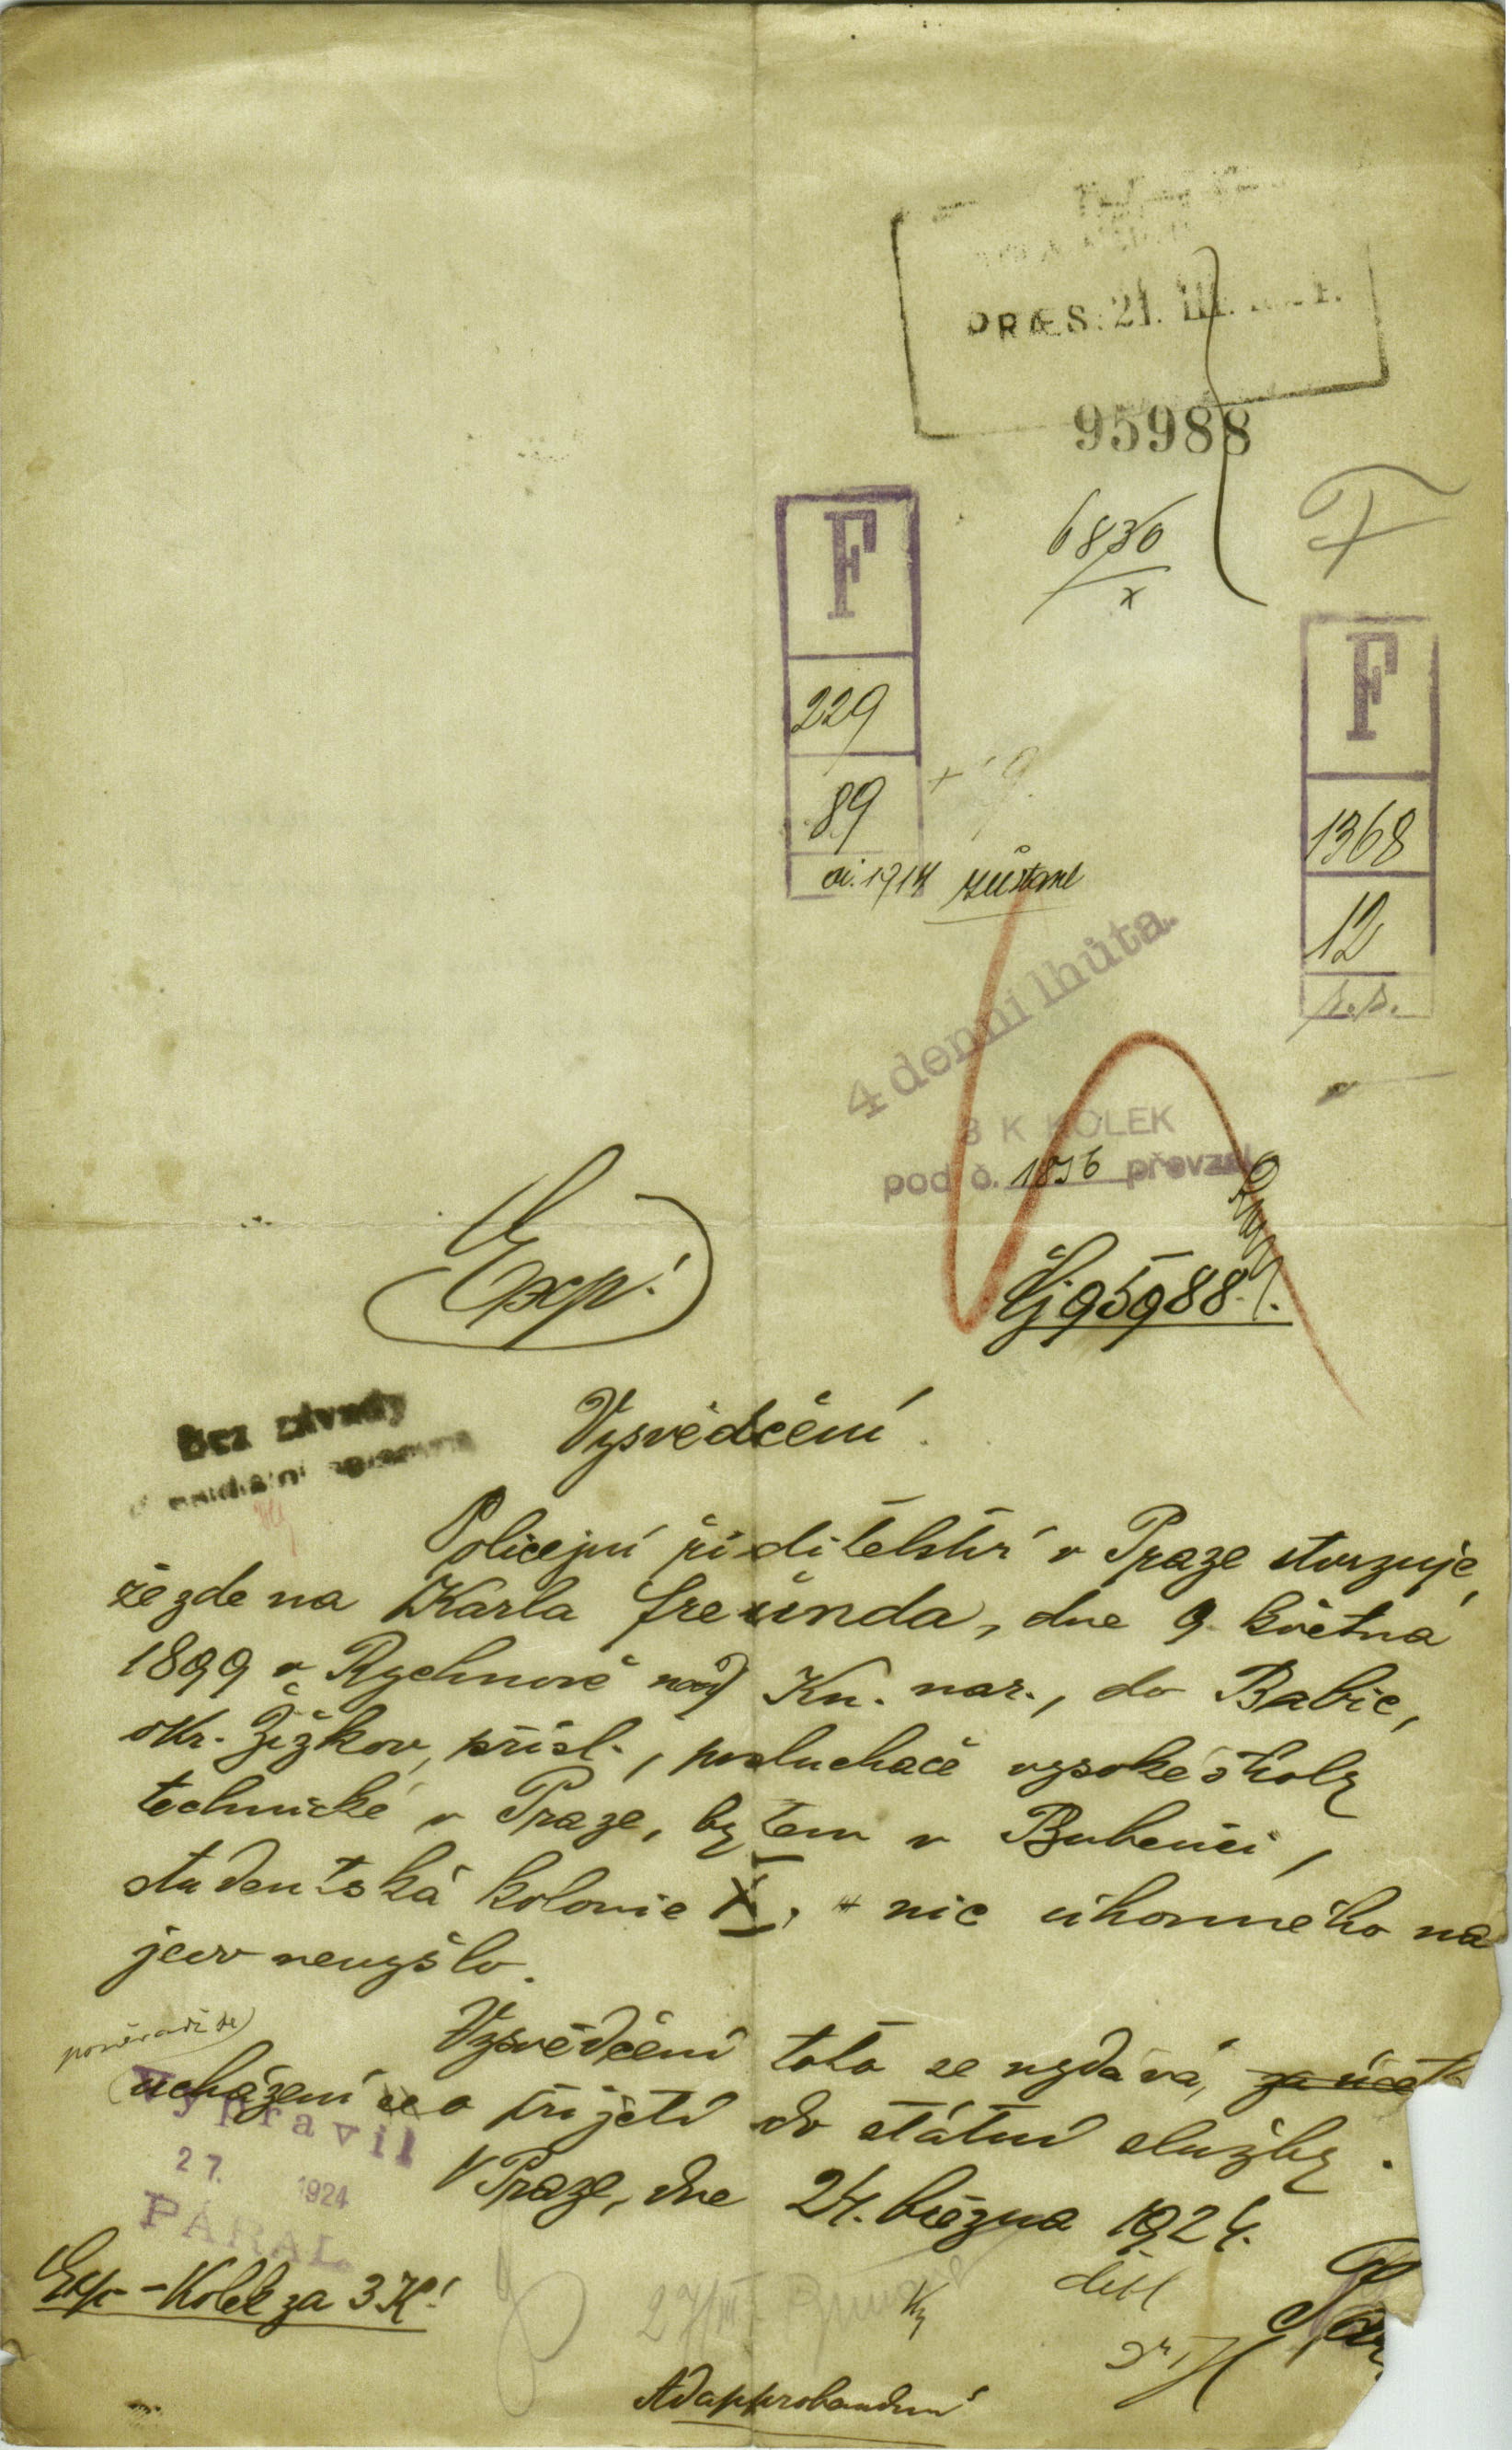 PRÆS: 21. III.
95988
6830
x
F
F
229
89
F
1368
12
zůstane
4 denní lhůta.
3 K KOLEK
pod č. 1836 převzal
Exp!
Čj 95988.
Bez závady
Vysvědčení.
Policejní ředitelství v Praze stvrzuje,
že zde na Karla Freunda, dne 9. května
1899 v Rychnově nad Kn. nar., do Babic,
okr. Žižkov, přísl., posluchače vysoké školy
technické v Praze, bytem v Bubenči,
studentská kolonie X, nic úhonného na
jevo nevyšlo.
Vysvědčení toto se vydává, za účel
ucházení se o přijetí do státní služby.
V Praze, dne 24. března 1924.
Vypravil
27. 1924
PARAL
Exp - Kolek za 3 K!
27/III
Ad approbandum!